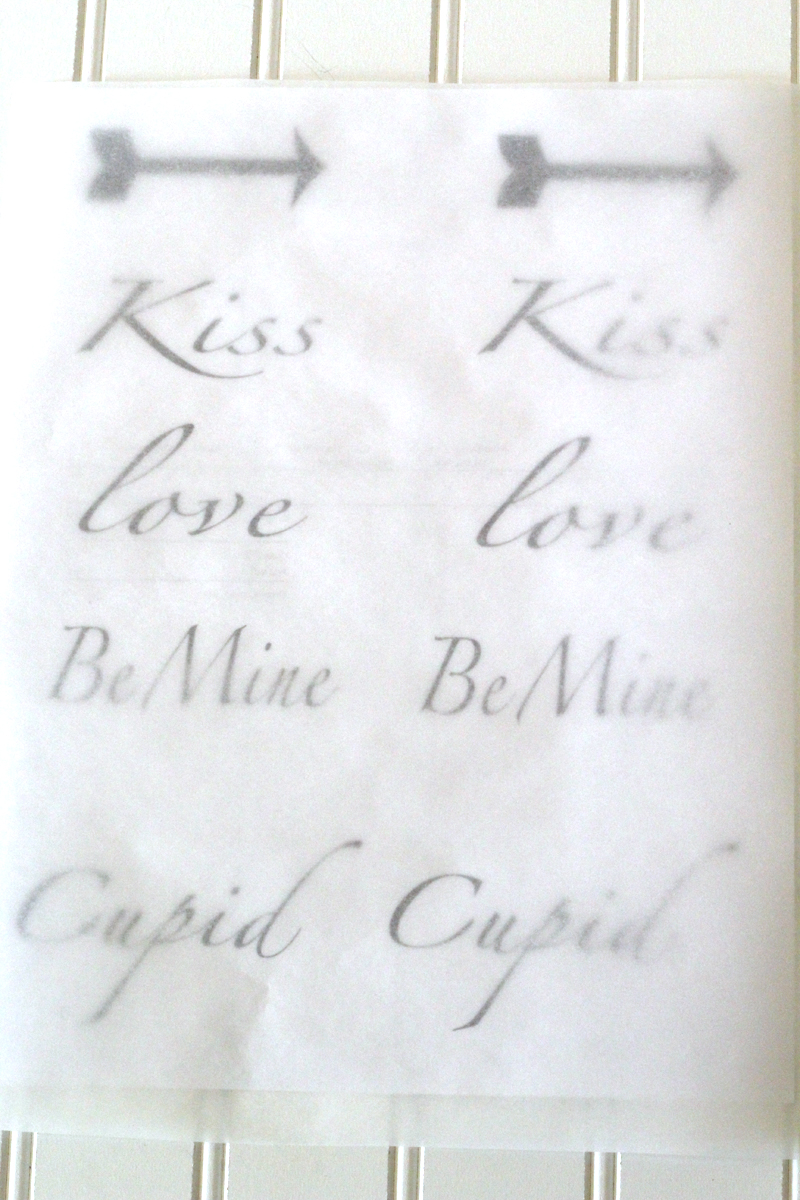 Kiss Kiss
love love
Be Mine Be Mine
Cupid Cupid